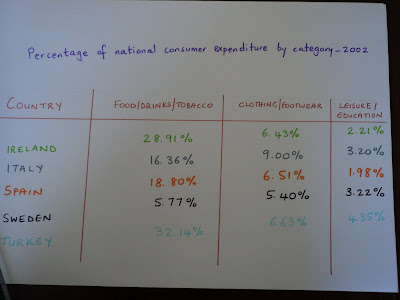 Percentage of national consumer expenditure by category_2002
COUNTRY FOOD/DRINKS/TOBACCO CLOTHING/FOOTWEAR LEISURE/EDUCATION
IRELAND 28.91% 6.43% 2.21%
ITALY 16.36% 9.00% 3.20%
SPAIN 18.80% 6.51% 1.98%
SWEDEN 5.77% 5.40% 3.22%
TURKEY 32.14% 6.63% 4.35%